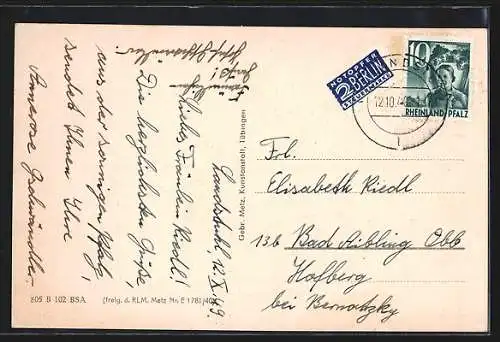 Landstuhl, 12.X.49.
Liebes Fräulein Riedl!
Die herzlichsten Grüße,
aus der sonnigen Pfalz,
sendet Ihnen Ihre
Annerose
Gebr. Metz, Kunstanstalt, Tübingen
605 B 102 BSA
(freig. d. RLM. Metz Nr. E 1781/40)
NOTOPFER
2 BERLIN
STEUERMARKE
10
RHEINLAND-PFALZ
12.10.49
Frl.
Elisabeth Riedl
13b Bad Aibling Obb
Hofberg
bei Bernatzky